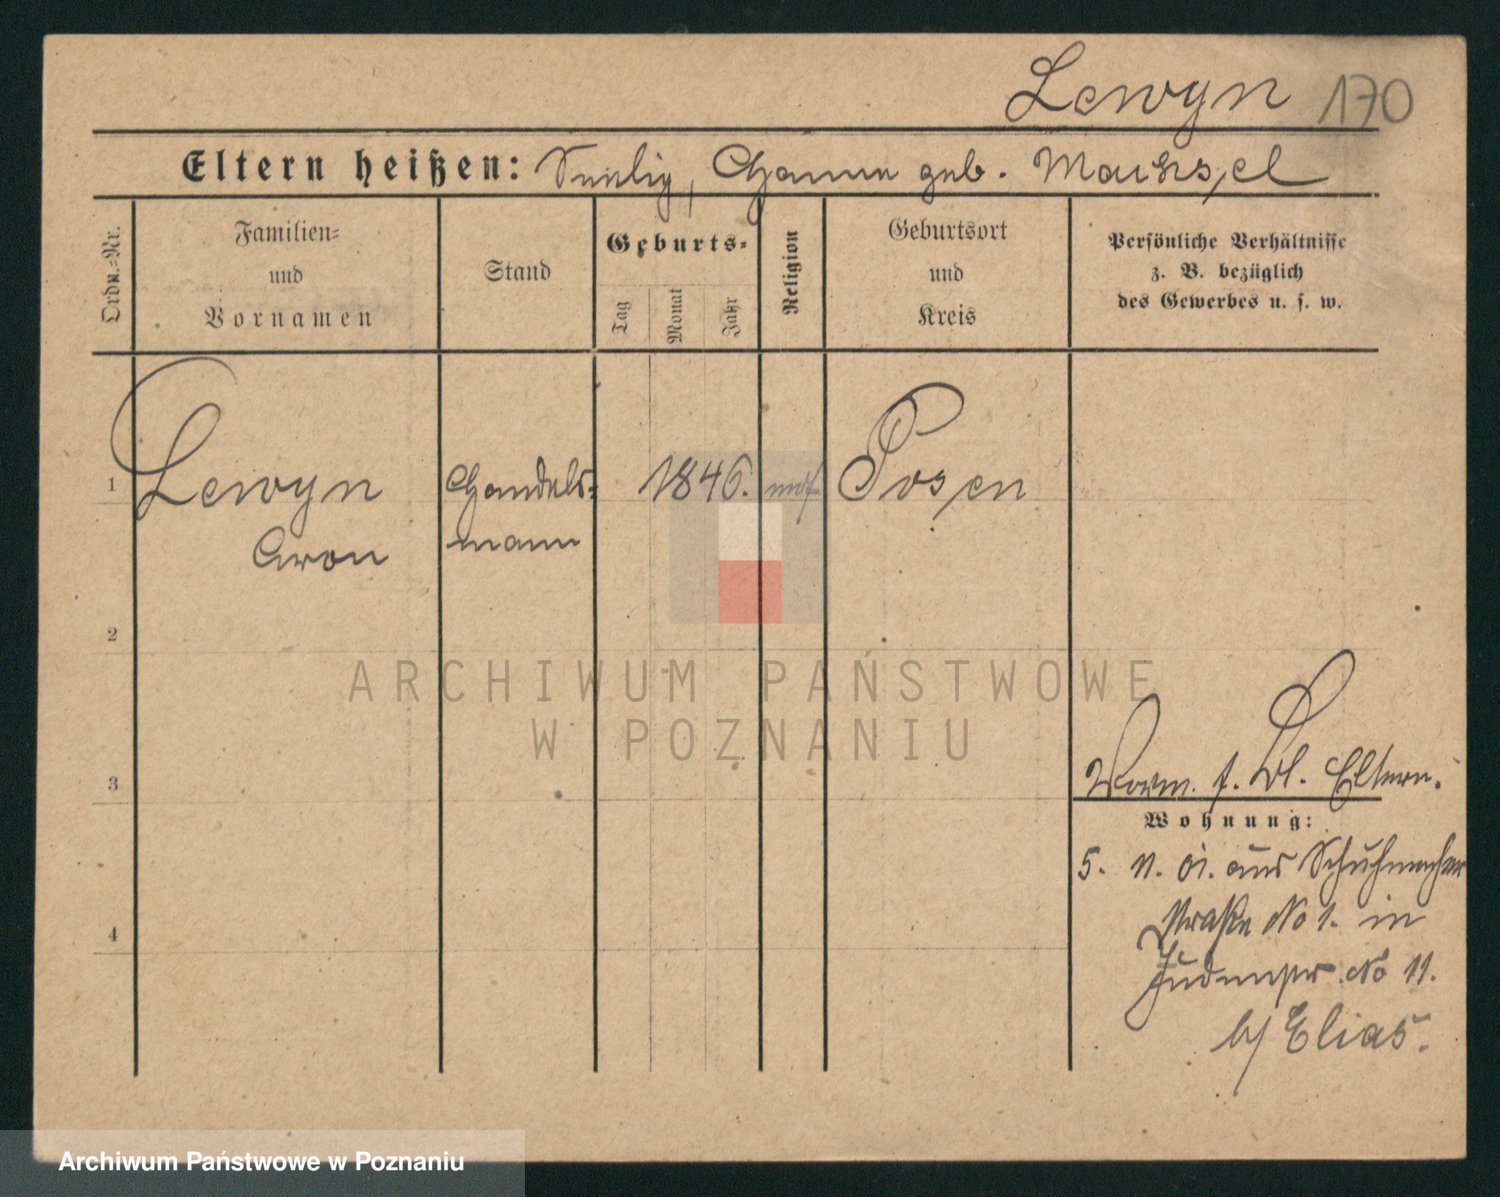 Lewyn 170
Eltern heißen: Seelig, Hanne geb. Machsel
Ordn.-Nr.
Familien-
und
Vornamen
Stand
Geburts-
Tag
Monat
Jahr
Religion
Geburtsort
und
Kreis
Persönliche Verhältnisse
z. B. bezüglich
des Gewerbes u. s. w.
1 Lewyn Handels- 1846. mos. Posen
Aron mann
2
ARCHIWUM PAŃSTWOWE
W POZNANIU
3
Eltern.
Wohnung:
5. 11. 01. aus Schuhmacher
straße No 1. in
Judenstr No 11.
4
b/ Elias.
Archiwum Państwowe w Poznaniu